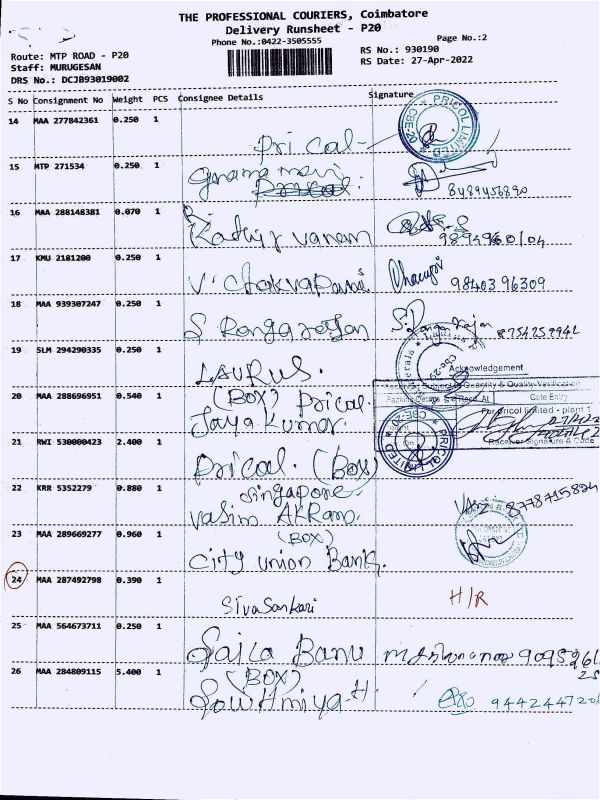 THE PROFESSIONAL COURIERS, Coimbatore
Delivery Runsheet - P20
Phone No.:0422-3505555
Page No.:2
Route: MTP ROAD - P20
RS No.: 930190
Staff: MURUGESAN
RS Date: 27-Apr-2022
DRS No.: DCJB93019002
S No Consignment No Weight PCS Consignee Details Signature
14 MAA 277842361 0.250 1
Pricol
PRICOL LIMITED
15 MTP 271534 0.250 1
8489456890
16 MAA 288148381 0.070 1
Kathir vanam
17 KMU 2181200 0.250 1
98403 96309
18 MAA 939307247 0.250 1
S Rangarajan
8754252941
19 SLM 294290335 0.250 1
LAURUS.
Acknowledgement
Subject to Quantity & Quality Verification
20 MAA 288696951 0.540 1
(BOX) Pricol.
Gate Entry
Jaya Kumar.
For pricol limited - plant 1
21 RWI 530000423 2.400 1
PRICOL LIMITED
Receiver Signature & Code
Pricol. (Box)
22 KRR 5352279 0.880 1
Singapore
8778715824
Vasim AKRam.
23 MAA 289669277 0.960 1
(BOX)
City union Bank.
24 MAA 287492798 0.390 1
Sivasankari
H/R
25 MAA 564673711 0.250 1
Saila Banu
26 MAA 284809115 5.400 1
(BOX)
Sowthmiya.H.